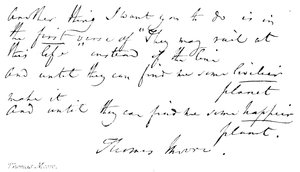 Another thing I want you to do is in
the first verse of "They may rail at
this life" instead of the line
And until they can find me some livelier
planet
make it
And until they can find me some happier
planet.
Thomas Moore.
Thomas Moore.